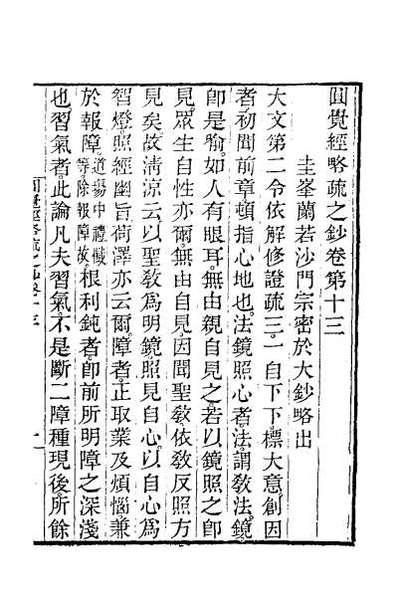 圓覺經略疏之鈔卷第十三
圭峯蘭若沙門宗密於大鈔略出
大文第二令依解修證疏三一自下下標大意創因
者初聞前章頓指心地也法鏡照心者法謂教法鏡
卽是喻如人有眼耳無由親自見之若以鏡照之卽
見眾生自性亦爾無由自見因聞聖敎依敎反照方
見矣故淸凉云以聖敎爲明鏡照見自心以自心爲
智燈照經幽旨荷澤亦云爾障者正取業及煩惱兼
於報障道場中禮懺等除報障故根利鈍者卽前所明障之深淺
也習氣者此論凡夫習氣不是斷二障種現後所餘